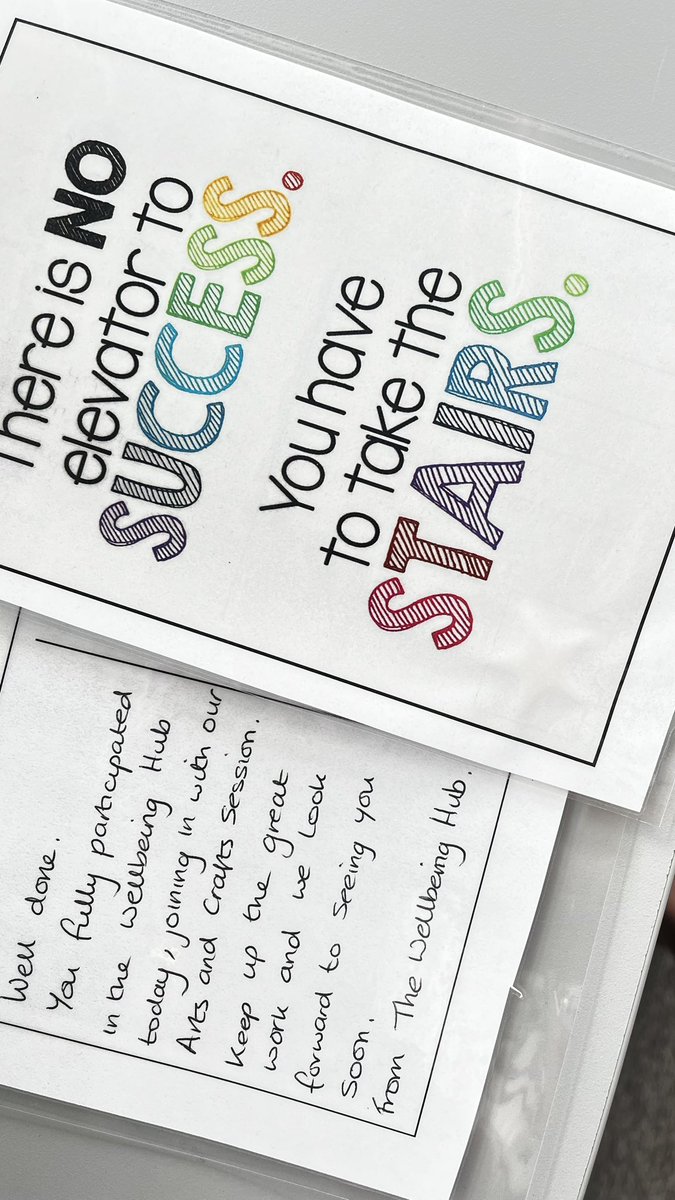 There is NO
elevator to
SUCCESS.
You have
to take the
STAIRS.
Well done.
You fully participated
in the wellbeing Hub
today, joining in with our
Arts and Crafts Session.
Keep up the great
work and we look
forward to seeing you
soon.
from The Wellbeing Hub.